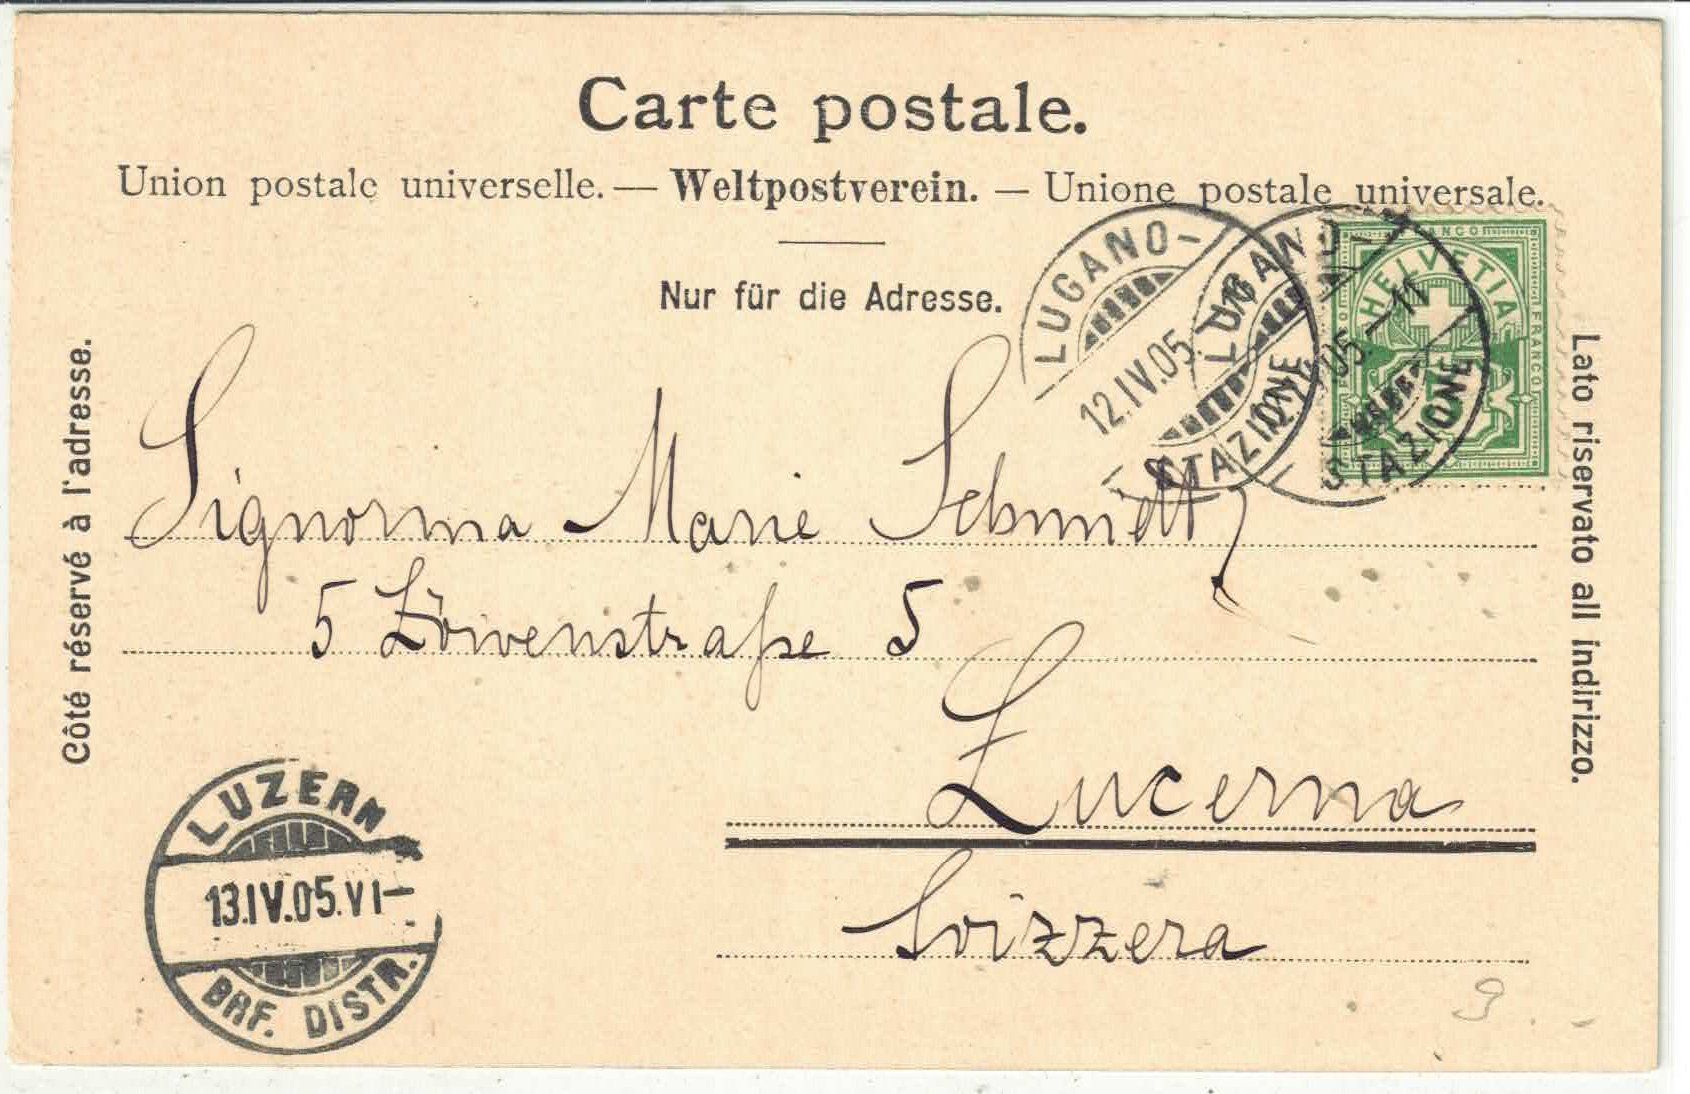 Carte postale.
Union postale universelle. — Weltpostverein. — Unione postale universale.
Nur für die Adresse.
Côté réservé à l'adresse.
Lato riservato all indirizzo.
LUGANO-
12.IV.05
STAZIONE
LUGANO-
05.-11
STAZIONE
FRANCO
HELVETIA
FRANCO
5
Signorina Marie Schmidt,
5 Löwenstraße 5
Lucerna
Svizzera
LUZERN
13.IV.05.VI-
BRF. DISTR.
9